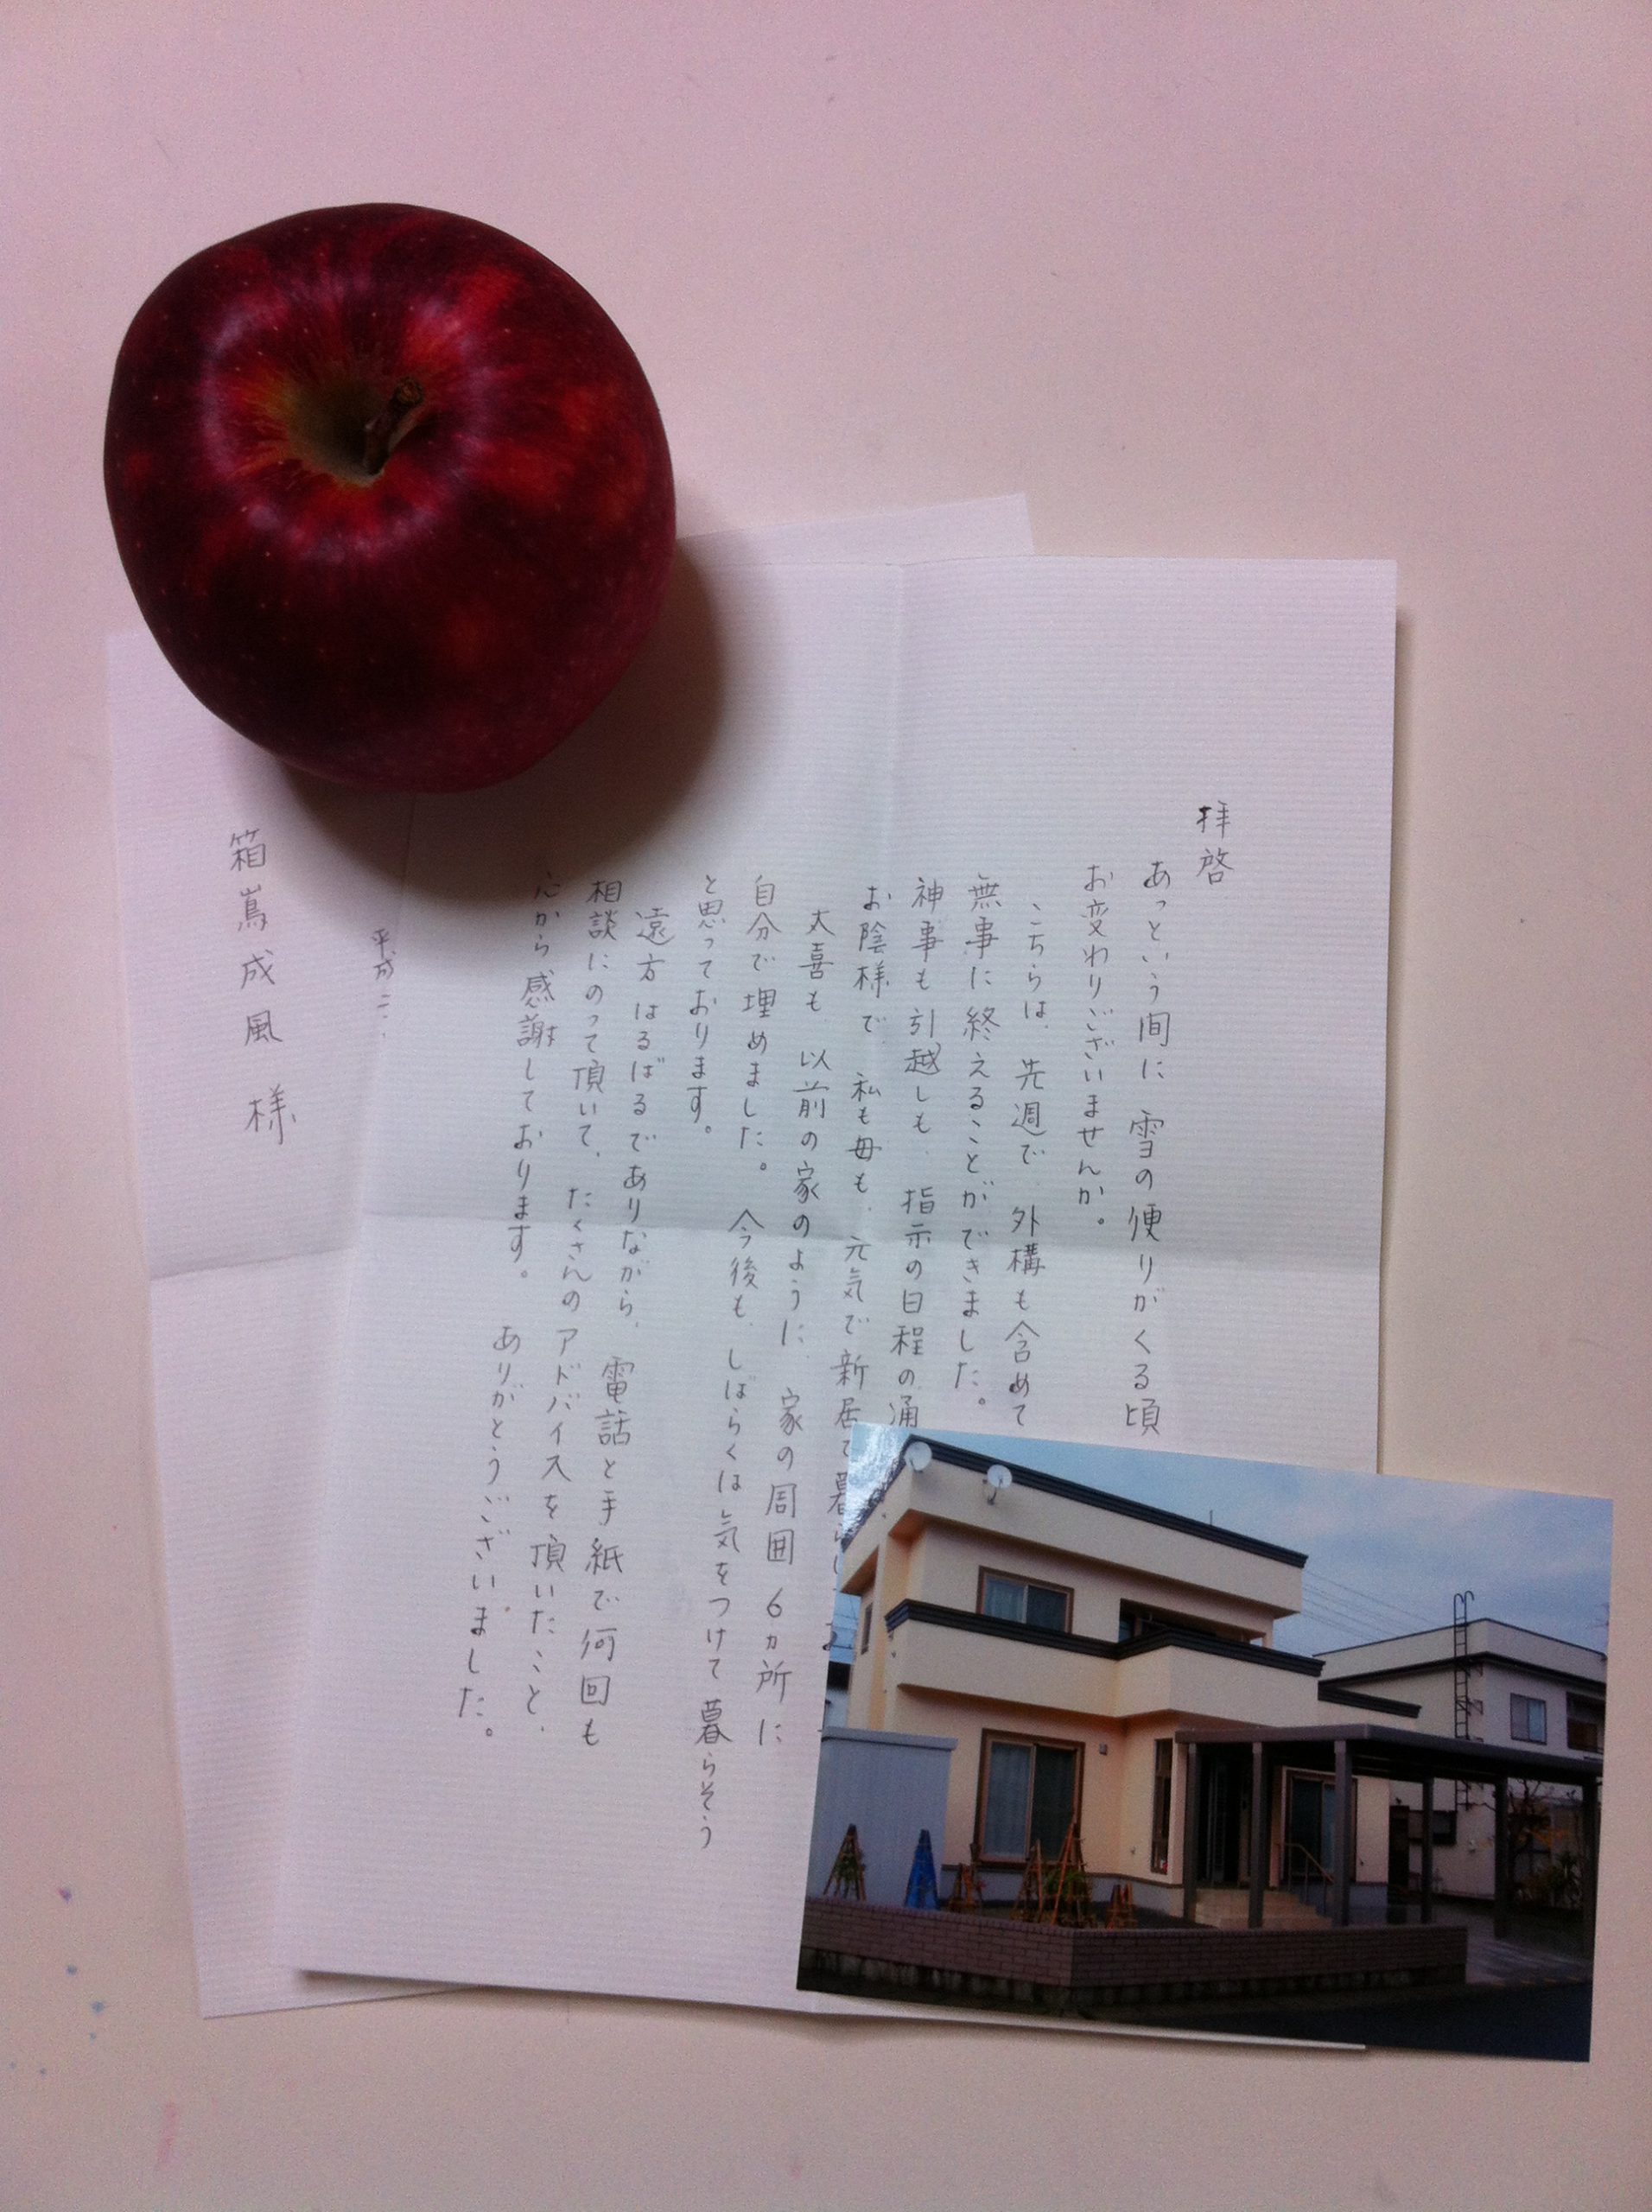 拝啓
あっという間に 雪の便りがくる頃
お変わりございませんか。
こちらは、先週で、外構も含めて
無事に終えることができました。
神事も引越しも、指示の日程の通
お陰様で、私も母も、元気で新居で暮らし
大喜も、以前の家のように、家の周囲6ヵ所に
自分で埋めました。今後も、しばらくは気をつけて暮らそう
と思っております。
遠方はるばるでありながら、電話と手紙で何回も
相談にのって頂いて、たくさんのアドバイスを頂いたこと、
心から感謝しております。ありがとうございました。
平成二
箱嶌成風 様